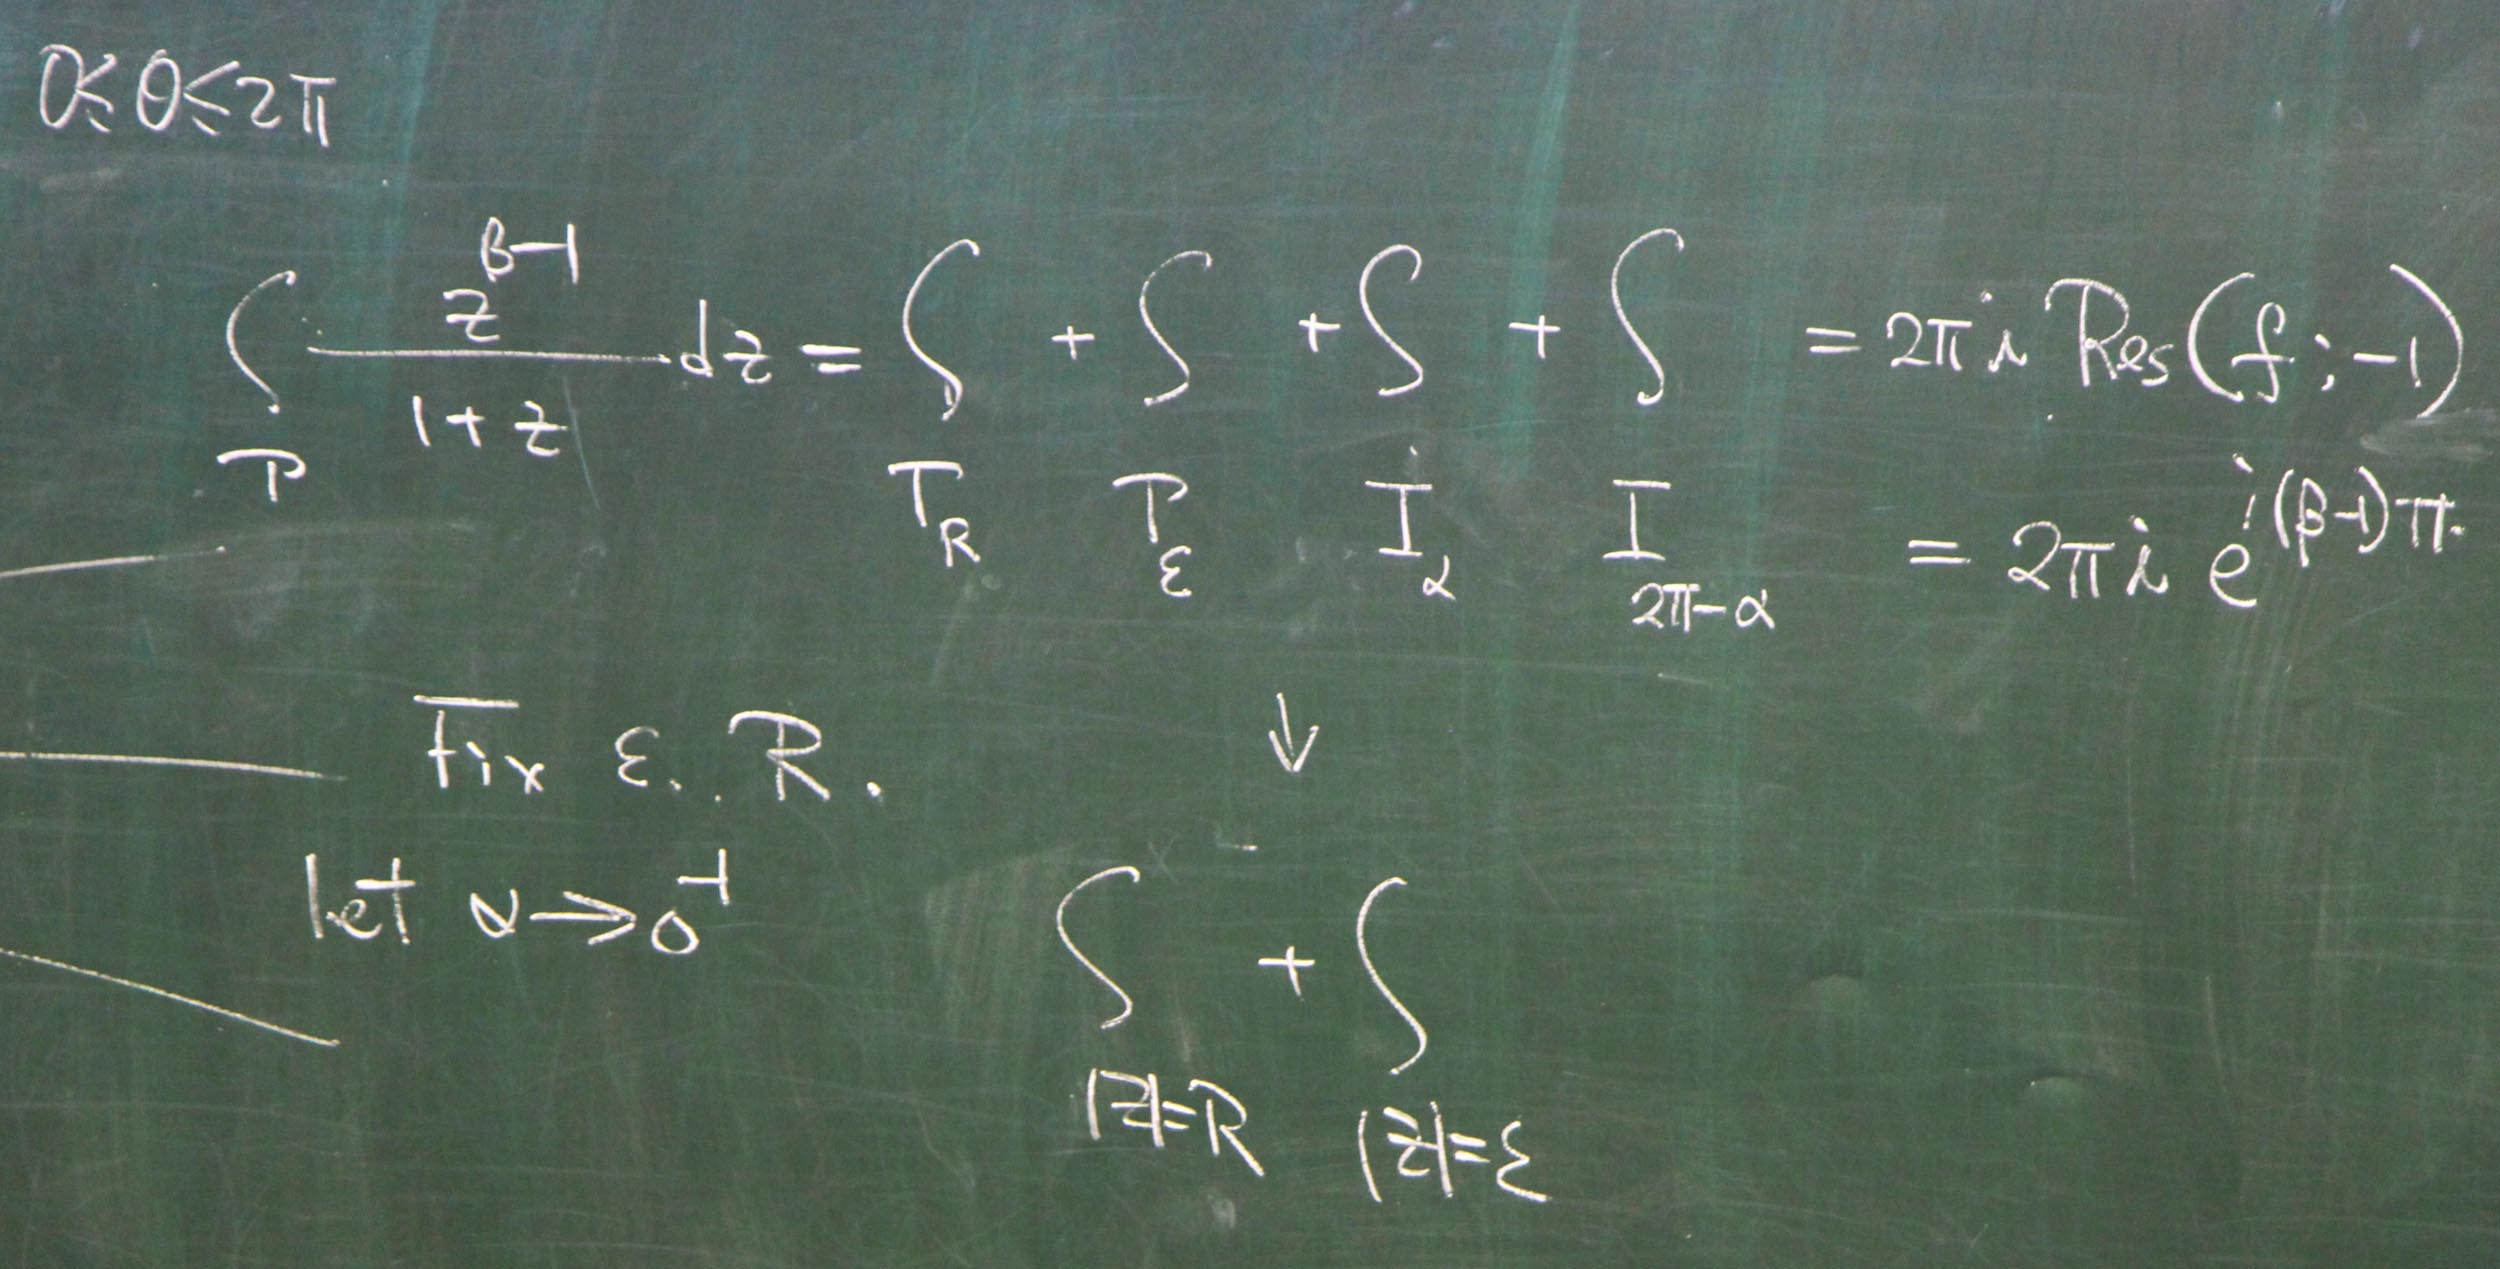 0 ≤ θ ≤ 2π
∫_Γ z^{β-1}/(1+z) dz = ∫_{Γ_R} + ∫_{Γ_ε} + ∫_{I_α} + ∫_{I_{2π-α}} = 2πi Res(f; -1)
= 2πi e^{i(β-1)π}.
Fix ε, R. ↓
let α → 0^+ ∫_{|z|=R} + ∫_{|z|=ε}